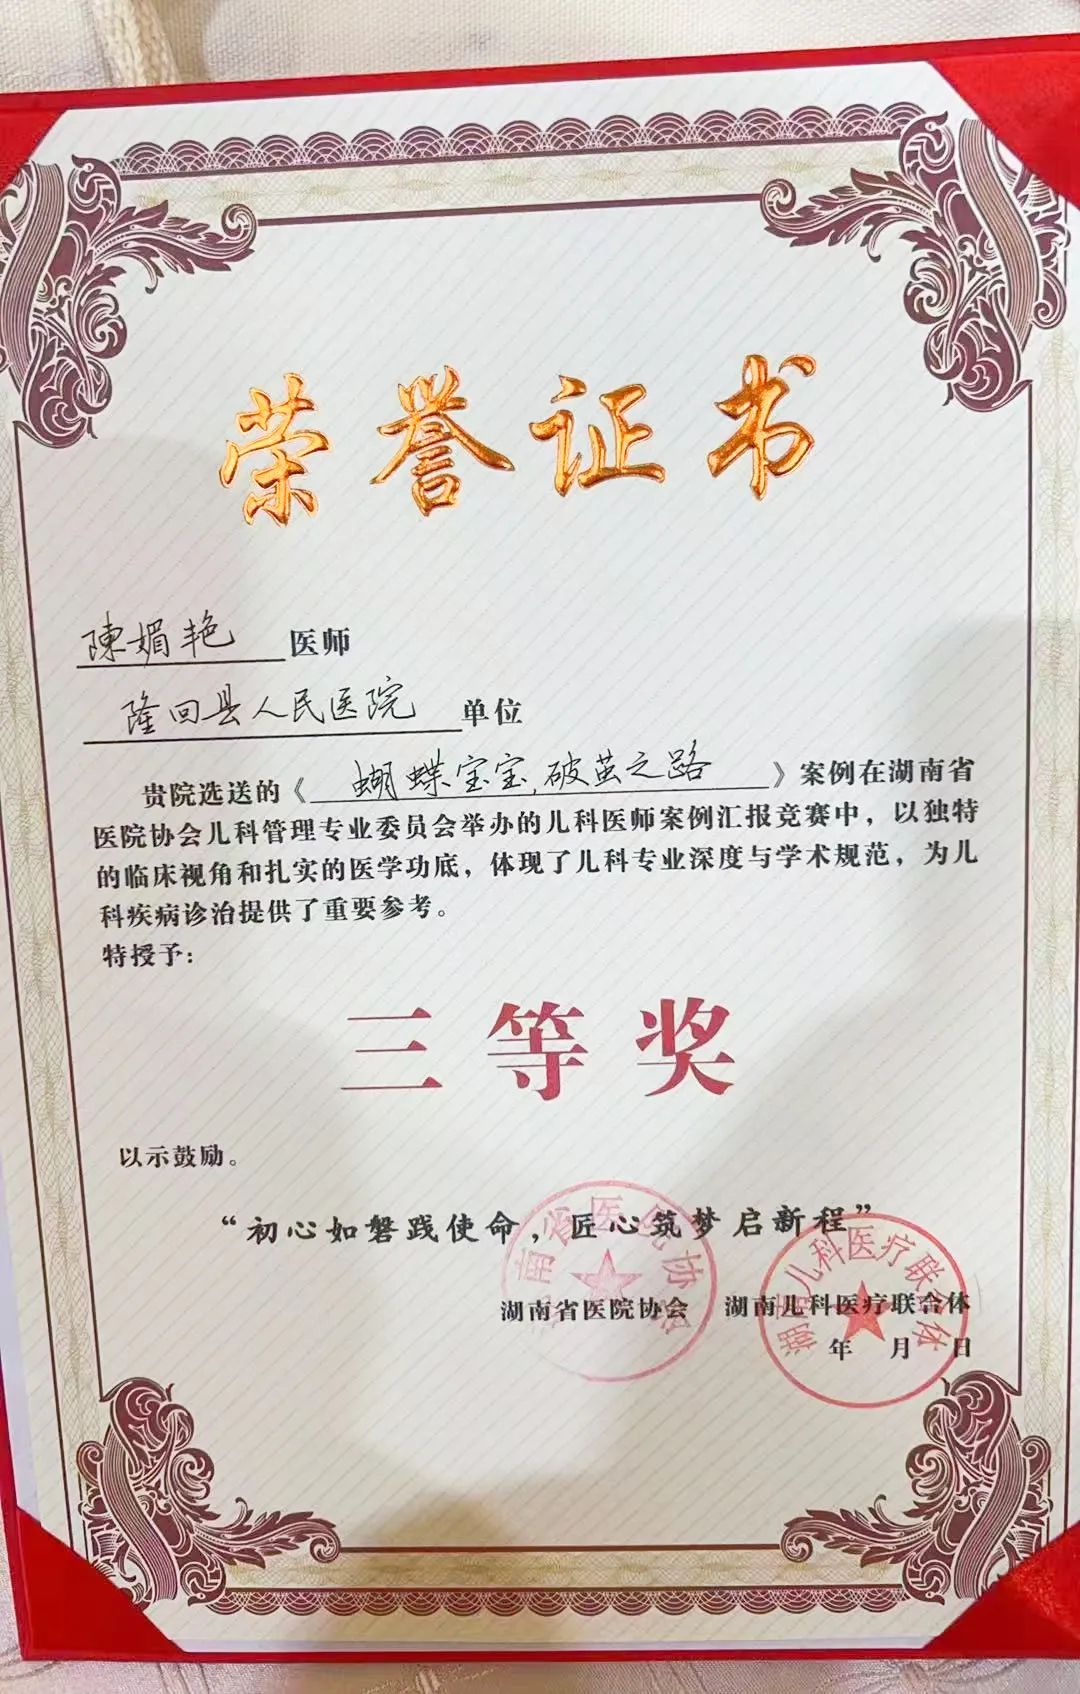 荣誉证书
陳媚艳 医师
隆回县人民医院 单位
贵院选送的《蝴蝶宝宝,破茧之路》案例在湖南省
医院协会儿科管理专业委员会举办的儿科医师案例汇报竞赛中，以独特
的临床视角和扎实的医学功底，体现了儿科专业深度与学术规范，为儿
科疾病诊治提供了重要参考。
特授予：
三等奖
以示鼓励。
“初心如磐践使命，匠心筑梦启新程”
湖南省医院协会 湖南儿科医疗联合体
年 月 日
湖南省医院协会
湖南儿科医疗联合体